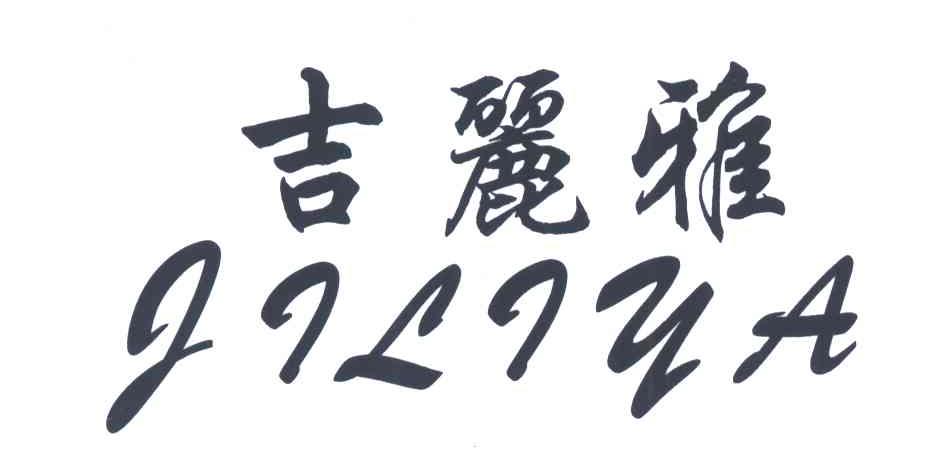 吉麗雅
JILIYA